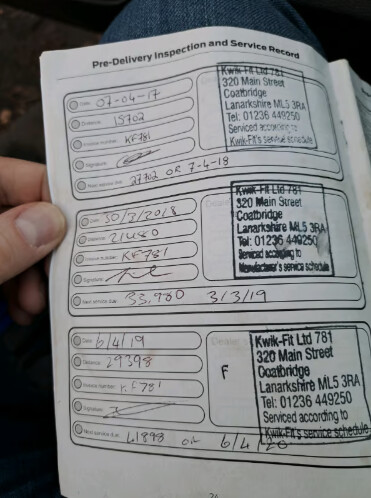 Pre-Delivery Inspection and Service Record
Date: 07-04-17
Distance: 15702
Invoice number: KF781
Signature:
Next service due: 27702 OR 7-4-18
Kwik-Fit Ltd 781
320 Main Street
Coatbridge
Lanarkshire ML5 3RA
Tel: 01236 449250
Serviced according to
Kwik-Fit's service schedule
Date: 30/3/2018
Distance: 21480
Invoice number: KF781
Signature:
Next service due: 33,980 3/3/19
Kwik-Fit Ltd 781
320 Main Street
Coatbridge
Lanarkshire ML5 3RA
Tel: 01236 449250
Serviced according to
Manufacturer's service schedule
Date: 6/4/19
Distance: 29398
Invoice number: KF781
Signature:
Next service due: 41898 OR 6/4/20
F
Kwik-Fit Ltd 781
320 Main Street
Coatbridge
Lanarkshire ML5 3RA
Tel: 01236 449250
Serviced according to
Kwik-Fit's service schedule